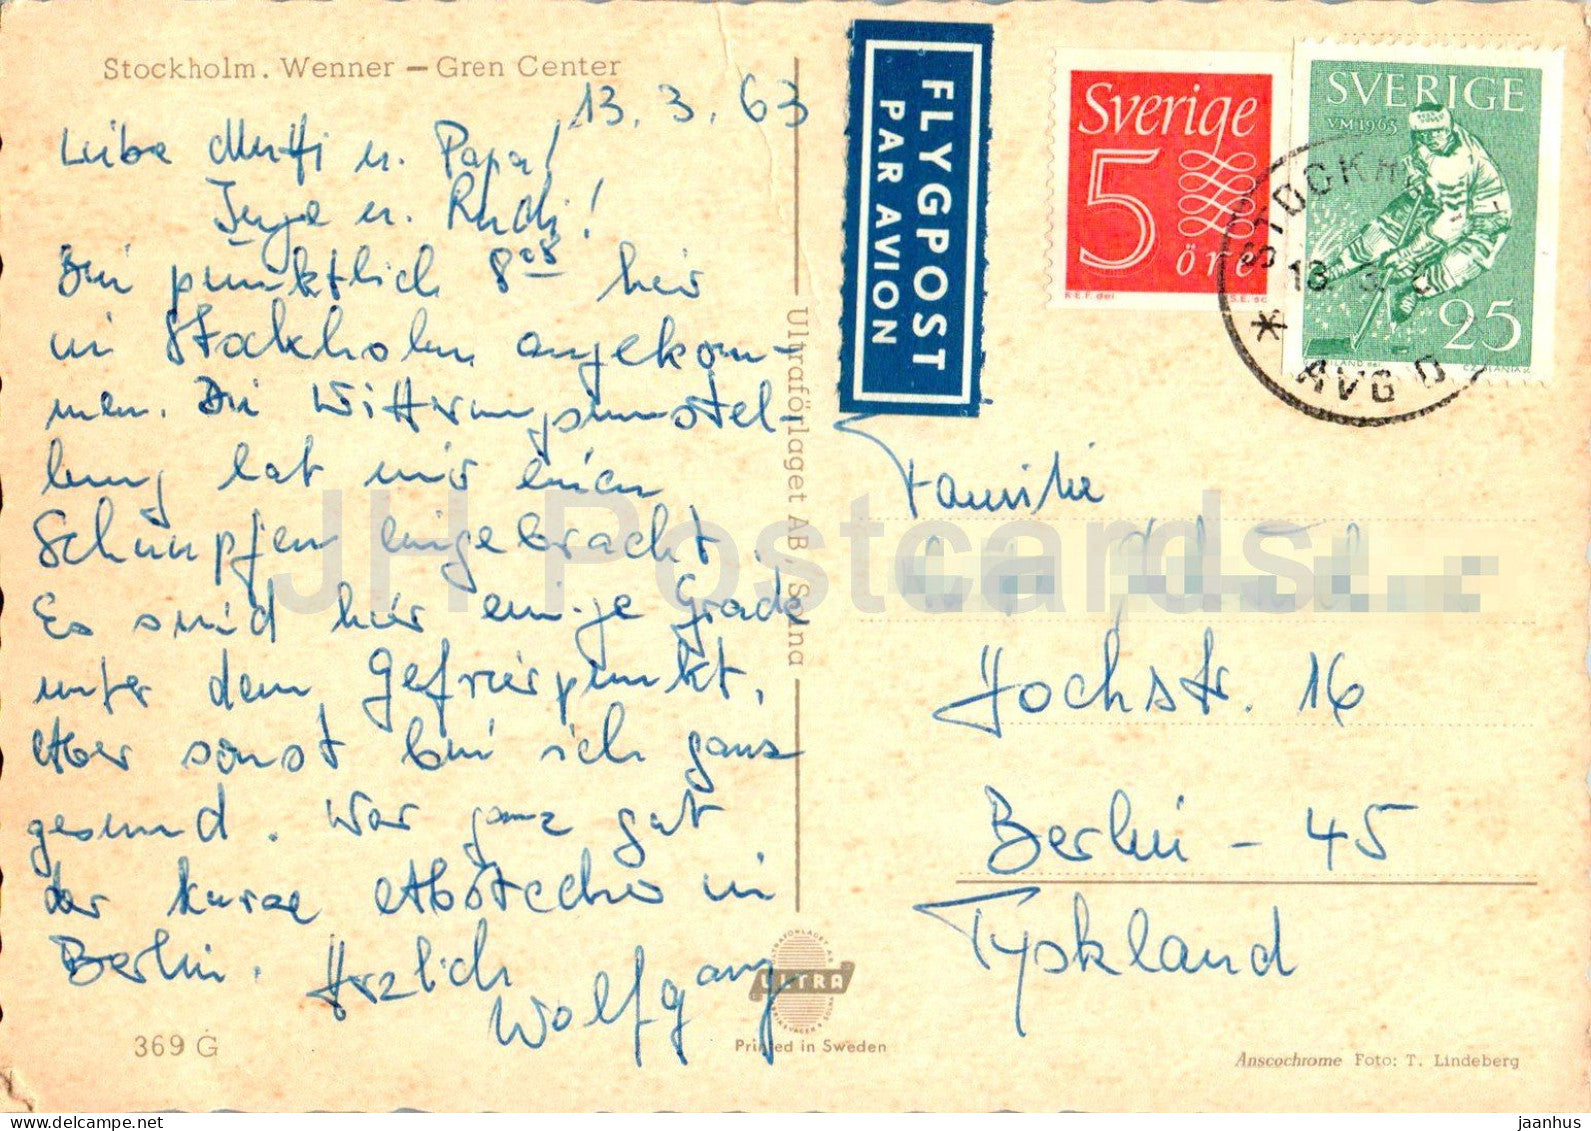 Stockholm. Wenner – Gren Center
13. 3. 63
Liebe Mutti u. Papa!
Inge u. Rudi!
Bin pünktlich 8⁰⁵ hier
in Stockholm angekom-
men. Die Witterungsumstel-
lung hat mir einen
Schnupfen eingebracht.
Es sind hier einige Grade
unter dem Gefrierpunkt.
Aber sonst bin ich ganz
gesund. War ganz gut
der kurze Abstecher in
Berlin. Herzlich
Wolfgang
369 G
Ultraförlaget AB, Solna
ULTRA
Printed in Sweden
FLYGPOST
PAR AVION
Sverige
5
öre
R.E.F. del
S.E. sc
SVERIGE
VM 1963
25
STOCKH
13 3
* AVG
Familie
Hochstr. 16
Berlin - 45
Tyskland
Anscochrome Foto: T. Lindeberg
JH Postcards
jaanhus
www.delcampe.net